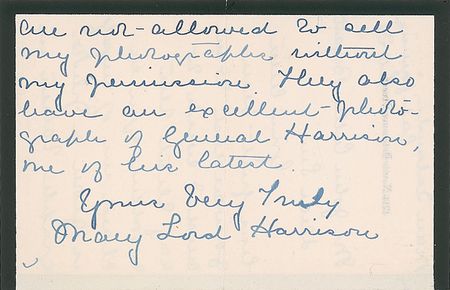 are not allowed to sell
my photographs without
my permission. They also
have an excellent photo-
graph of General Harrison,
one of his latest.
Yours Very Truly
Mary Lord Harrison